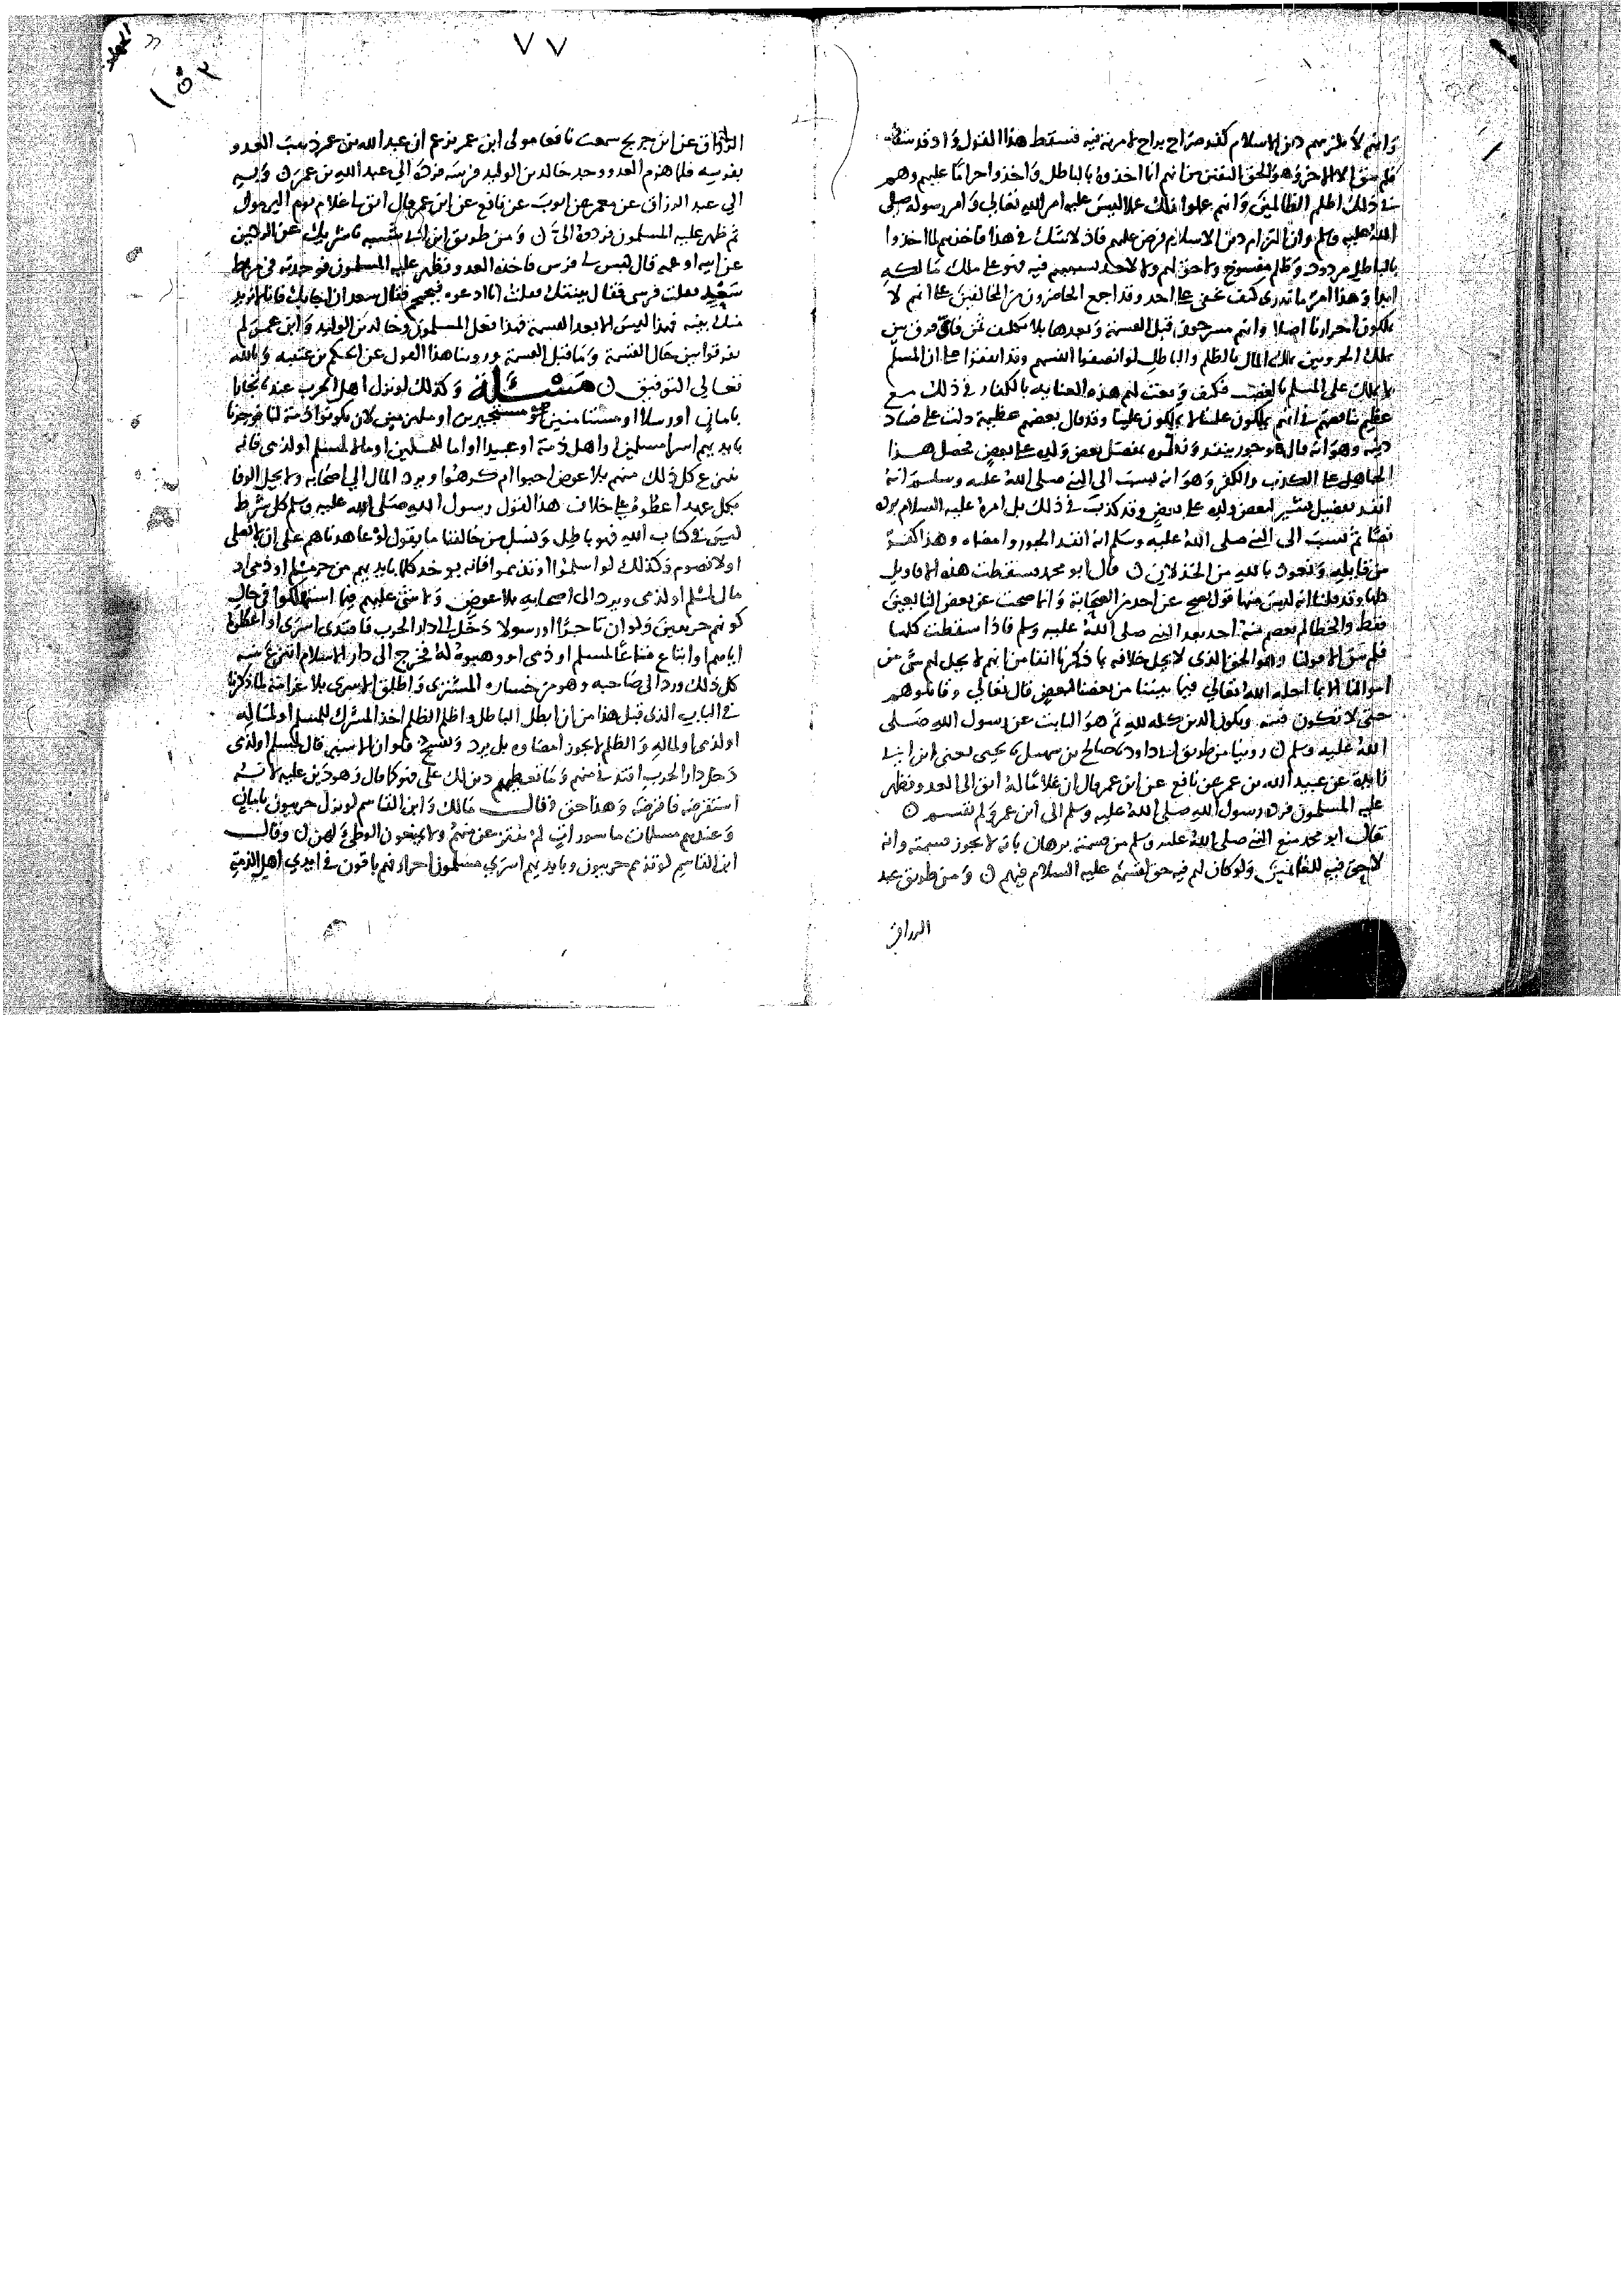 وانهم لا يلزمهم دين الاسلام كفر صراح براح لا مرية فيه فسقط هذا القول واذ قد سقط
فلم يبق الا الاخر وهو الحق المتفق من انهم انما اخذوه بالباطل واخذوا حراما عليهم وهم
في ذلك اظلم الظالمين وانهم عملوا بذلك عملا ليس عليه امر الله تعالى وامر رسوله صلى
الله عليه وسلم وان التزام دين الاسلام فرض عليهم فاذ لا شك في هذا فاخذهم لما اخذوا
بالباطل مردود وظلم مفسوخ ولا حق لهم ولا لاحد يشبههم فيه فهو على ملك مالكه
ابدا وهذا امر ما ندري كيف خفي على احد وقد اجمع الحاضرون من المخالفين على انهم لا
يملكون احرارنا اصلا وانهم مسرحون قبل القسمة وبعدها بلا تكليف ثمن فاي فرق بين
ملك الحر وبين ملك المال بالظلم والباطل لو انصفوا انفسهم وقد اتفقوا على ان المسلم
لا يملك على المسلم بالغصب فكيف وقعت لهم هذه العناية بالكفار في ذلك مع
عظيم تناقضهم في انهم يملكون علينا لا يملكون علينا وقد قال بعضهم عظيمة دلت على فساد
دينه وهو انه قال
الجاهل على الكذب والكفر وهو انه نسب الى النبي صلى الله عليه وسلم انه
انفذ تفضيل بشير لبعض ولده على بعض وقد كذب في ذلك بل امره عليه السلام برده
نصا ثم نسب الى النبي صلى الله عليه وسلم انه انفذ الجور وامضاه وهذا كفر
من قايله ونعوذ بالله من الخذلان ن قال ابو محمد فسقطت هذه الاقاويل
كلها وقد قلنا انه ليس منها قول يصح عن احد من الصحابة وانما صحت عن بعض التابعين
فقط والخطا لم يعصم منه احد بعد النبي صلى الله عليه وسلم فاذا سقطت كلها
فلم يبق الا قولنا وهو الحق الذي لا يحل خلافه بما ذكرنا انفا من انهم لا يحل لهم شي من
اموالنا الا بما احله الله تعالى فيما بيننا من بعضنا لبعض قال تعالى وقاتلوهم
حتى لا تكون فتنة ويكون الدين كله لله ثم هو الثابت عن رسول الله صلى
الله عليه وسلم ن روينا من طريق ابي داود نا صالح بن سهيل نا يحيى يعني ابن ابي
زايدة عن عبيد الله بن عمر عن نافع عن ابن عمر قال ان غلاما له ابق الى العدو فظهر
عليه المسلمون فرده رسول الله صلى الله عليه وسلم الى ابن عمر ولم يقسم ن
قال ابو محمد منع النبي صلى الله عليه وسلم من قسمته برهان بانه لا يجوز قسمته وانه
لا حق فيه للغانمين ولو كان لهم فيه حق لقسمه عليه السلام فيهم ن ومن طريق عبد
الرزاق
٧٧
الرزاق عن ابن جريج سمعت نافعا مولى ابن عمر يزعم ان عبد الله بن عمر ذهب العدو
بفرسه فلما هزم العدو وجد خالد بن الوليد فرسه فرده الى عبد الله بن عمر ن وبه
الى عبد الرزاق عن معمر عن ايوب عن نافع عن ابن عمر قال ابق لي غلام يوم اليرموك
ثم ظهر عليه المسلمون فردوه الي ن ومن طريق ابن ابي شيبة نا شريك عن الركين
عن ابيه او عمه قال حبس لي فرس فاخذه العدو فظهر عليه المسلمون فوجدته في مربط
سعد فقلت فرسي فقال بينتك فقلت انا ادعوه فيحمحم فقال سعد ان اجابك فانا لا نريد
منك بينة فهذا ليس الا بعد القسمة فهذا فعل المسلمين وخالد بن الوليد وابن عمر لم
يفرقوا بين حال القسمة وما قبل القسمة وروينا هذا القول عن الحكم بن عتيبة وبالله
تعالى التوفيق ن مسئلة وكذلك لو نزل اهل الحرب عندنا تجارا
بامان او رسلا او مستامنين مستجيرين او ملتزمين لان يكونوا ذمة لنا فوجدنا
بايديهم اسرا مسلمين او اهل ذمة او عبيدا او اما للمسلمين او مالا لمسلم او لذمي فانه
ينتزع كل ذلك منهم بلا عوض احبوا ام كرهوا ويرد المال الى اصحابه ولا يحل الوفا
بكل عهد اعطوه على خلاف هذا لقول رسول الله صلى الله عليه وسلم كل شرط
ليس في كتاب الله فهو باطل ونسل من خالفنا ما يقول لو عاهدناهم على ان لا نصلي
او لا نصوم وكذلك لو اسلموا او تذمموا فانه يوخذ كلما بايديهم من حر مسلم او ذمي او
مال لمسلم او لذمي ويرد الى اصحابه بلا عوض ولا شي عليهم فيما استهلكوا في حال
كونهم حربيين ولو ان تاجرا او رسولا دخل الى دار الحرب فافتدى اسرى او اعطوه
اياهم او ابتاع متاعا لمسلم او ذمي او وهبوه له فخرج الى دار الاسلام انتزع منه
كل ذلك ورد الى صاحبه وهو من خسارة المشتري واطلق الاسرى بلا غرامة لما ذكرنا
في الباب الذي قبل هذا من ان ابطل الباطل واظلم الظلم اخذ المشرك للمسلم او لماله
او لذمي او لماله والظلم لا يجوز امضاوه بل يرد ويفسخ فلو ان الاسير قال لمسلم او لذمي
دخل دار الحرب افدني منهم وما تعطيهم دين لك علي فهو كما قال وهو دين عليه لانه
استقرضه فاقرضه وهذا حق وقال مالك وابن القاسم لو نزل حربيون بامان
وعندهم مسلمات ماسورات لم ينتزعن منهم ولا يمنعون الوطي لهن ن وقال
ابن القاسم لو تذمم حربيون وبايديهم اسرى مسلمون احرار فهم باقون في ايدي اهل الذمة